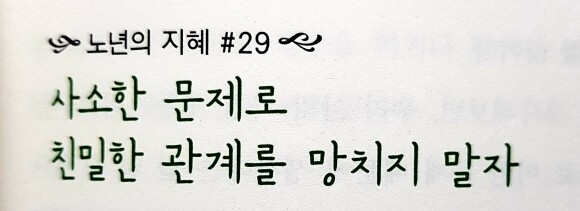 노년의 지혜 #29
사소한 문제로
친밀한 관계를 망치지 말자